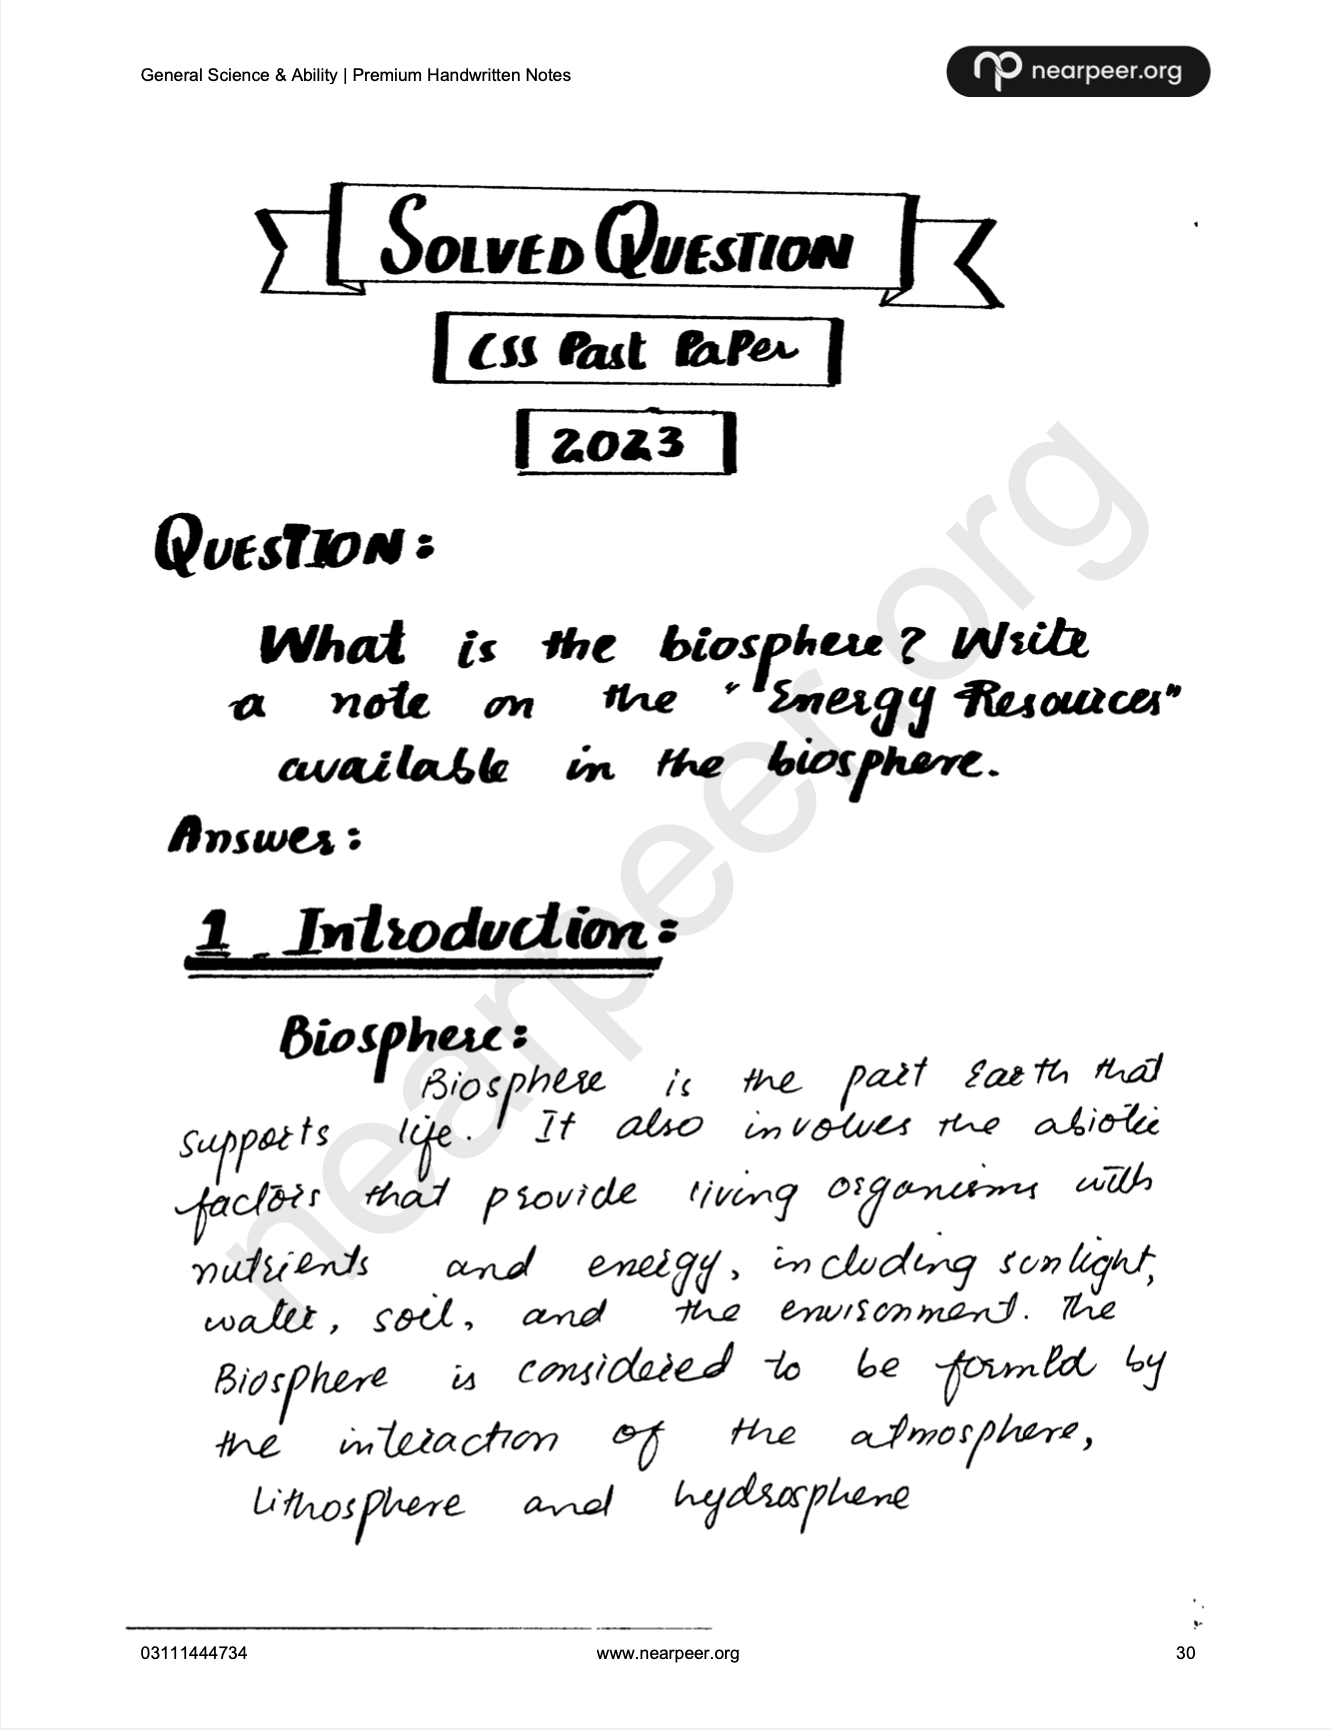 General Science & Ability | Premium Handwritten Notes
nearpeer.org
SOLVED QUESTION
CSS Past PaPer
2023
QUESTION:
What is the biosphere? Write
a note on the "Energy Resources"
available in the biosphere.
Answer:
1 Introduction:
Biosphere:
Biosphere is the part Earth that
supports life. It also involves the abiotic
factors that provide living organisms with
nutrients and energy, including sunlight,
water, soil, and the environment. The
Biosphere is considered to be formed by
the interaction of the atmosphere,
Lithosphere and hydrosphere
nearpeer.org
03111444734
www.nearpeer.org
30